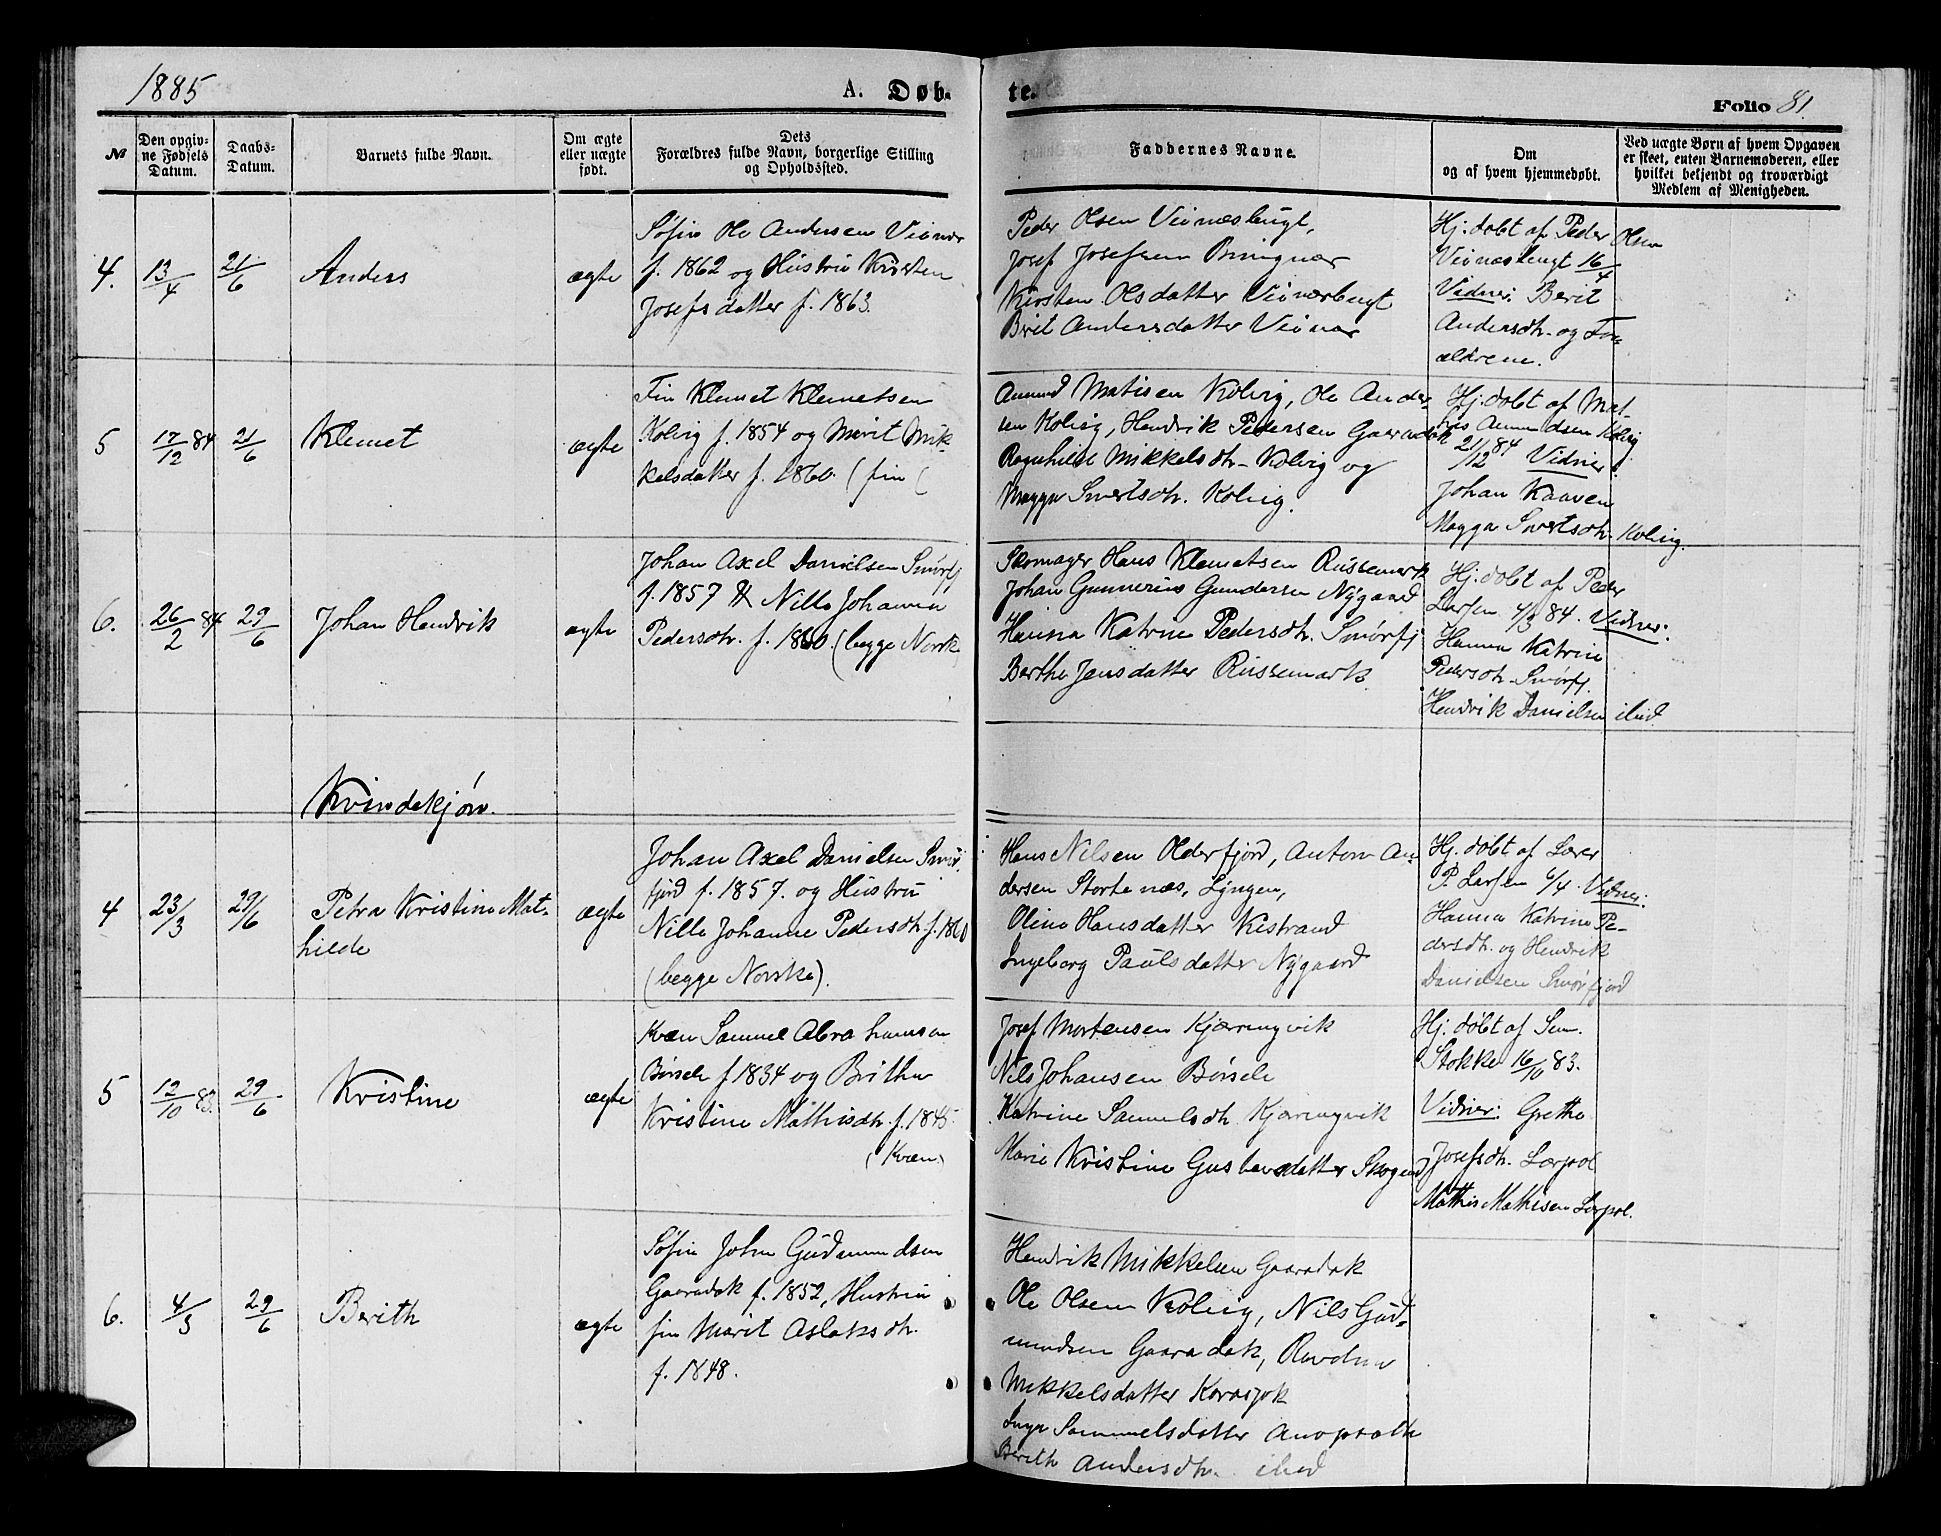 1885
A. Døb-
te.
Folio 81.
№
Den opgiv-
ne Fødsels
Datum.
Daabs-
Datum.
Barnets fulde Navn.
Om ægte
eller uægte
født.
Dets
Forældres fulde Navn, borgerlige Stilling
og Opholdssted.
Faddernes Navne.
Om
og af hvem hjemmedøbt.
Ved uægte Børn af hvem Opgaven
er skeet, enten Barnemoderen, eller
hvilket bekjendt og troværdigt
Medlem af Menigheden.
4.
13/4
21/6
Anders
ægte
Søfin Ole Andersen
f. 1862 og Hustru Kirsten
Josefsdatter f. 1863.
Peder Olsen
Josef Josefsen
Kirsten Olsdatter
Berit Andersdatter
Hj. døbt af Peder Olsen
16/4
Vidner: Berit
Andersdtr. og For-
ældrene.
5
17/12 84
21/6
Klemet
ægte
Fin Klemet Klemetsen
Kolvig f. 1854 og Marit Mik-
kelsdatter f. 1860. (fin (
Amund Matisen Kolvig, Ole Ander-
sen Kolvig, Hendrik Pedersen Gaaradak
Ragnhild Mikkelsdtr. Kolvig og
Magga Sivertsdtr. Kolvig.
Hj. døbt af Mat-
his Amundsen Kolvig
21/12 84 Vidner:
Johan Kaaven
Magga Sivertsdtr. Kolvig.
6.
26/2 84
29/6
Johan Hendrik
ægte
Johan Axel Danielsen Smørfj
f. 1857 & Nille Johanna
Pedersdtr. f. 1860. (begge Norske)
Skomager Hans Klemetsen Russemark
Johan Gunnerius Gundersen Nygaard
Hanna Katrine Pedersdtr. Smørfj
Berthe Jensdatter Russemark.
Hj. døbt af Peder
Larsen 4/3 84. Vidner:
Hanna Katrine
Pedersdtr. Smørfj.
Hendrik Danielsen ibid
Kvindekjøn.
4
23/3
29/6
Petra Kristine Mat-
hilde
ægte
Johan Axel Danielsen Smør-
fjord f. 1857. og Hustru
Nille Johanne Pedersdtr. f. 1860
(begge Norske).
Hans Nilsen Olderfjord, Anton An-
dersen Stortenæs, Lyngen,
Oline Hansdatter Kistrand
Ingeborg Paulsdatter Nygaard
Hj. døbt af Lærer
P. Larsen 6/4. Vidner:
Hanna Katrine Pe-
dersdtr. og Hendrik
Danielsen Smørfjord
5
12/10 83.
29/6
Kristine
ægte
Kvæn Samuel Abrahamsen
Børsele f. 1834 og Britha
Kristine Mathisdtr. f. 1845.
(Kvæn)
Josef Mortensen Kjærringvik
Nils Johansen Børsele
Katrine Samuelsdtr. Kjærringvik
Marie Kristine Gustavsdatter
Hj. døbt af Sem.
Stokke 16/10 83.
Vidner: Grethe
Josefsdtr. Lærpol
Mathis Mathisen Lærpol.
6.
4/3
29/6
Berith
ægte
Søfin John Gudmundsen
Gaaradak f. 1852, Hustru
fin Marit Aslaksdtr.
f. 1848.
Hendrik Mikkelsen Gaaradak
Ole Olsen Kolvig, Nils Gud-
mundsen Gaaradak,
Mikkelsdatter Karasjok
Inga Sammelsdatter
Berith Andersdtr. ibid